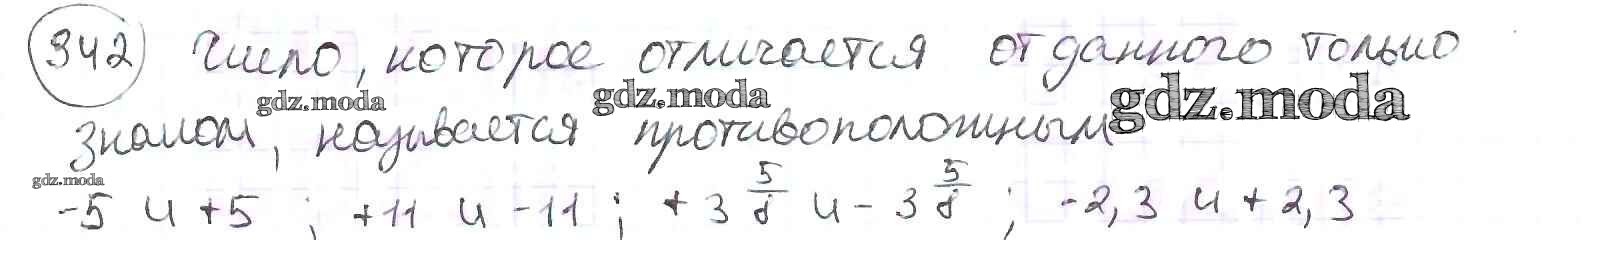 342 Число, которое отличается от данного только
gdz.moda gdz.moda gdz.moda
знаком, называется противоположным
gdz.moda
-5 и +5 ; +11 и -11 ; +3 5/8 и -3 5/8 ; -2,3 и +2,3